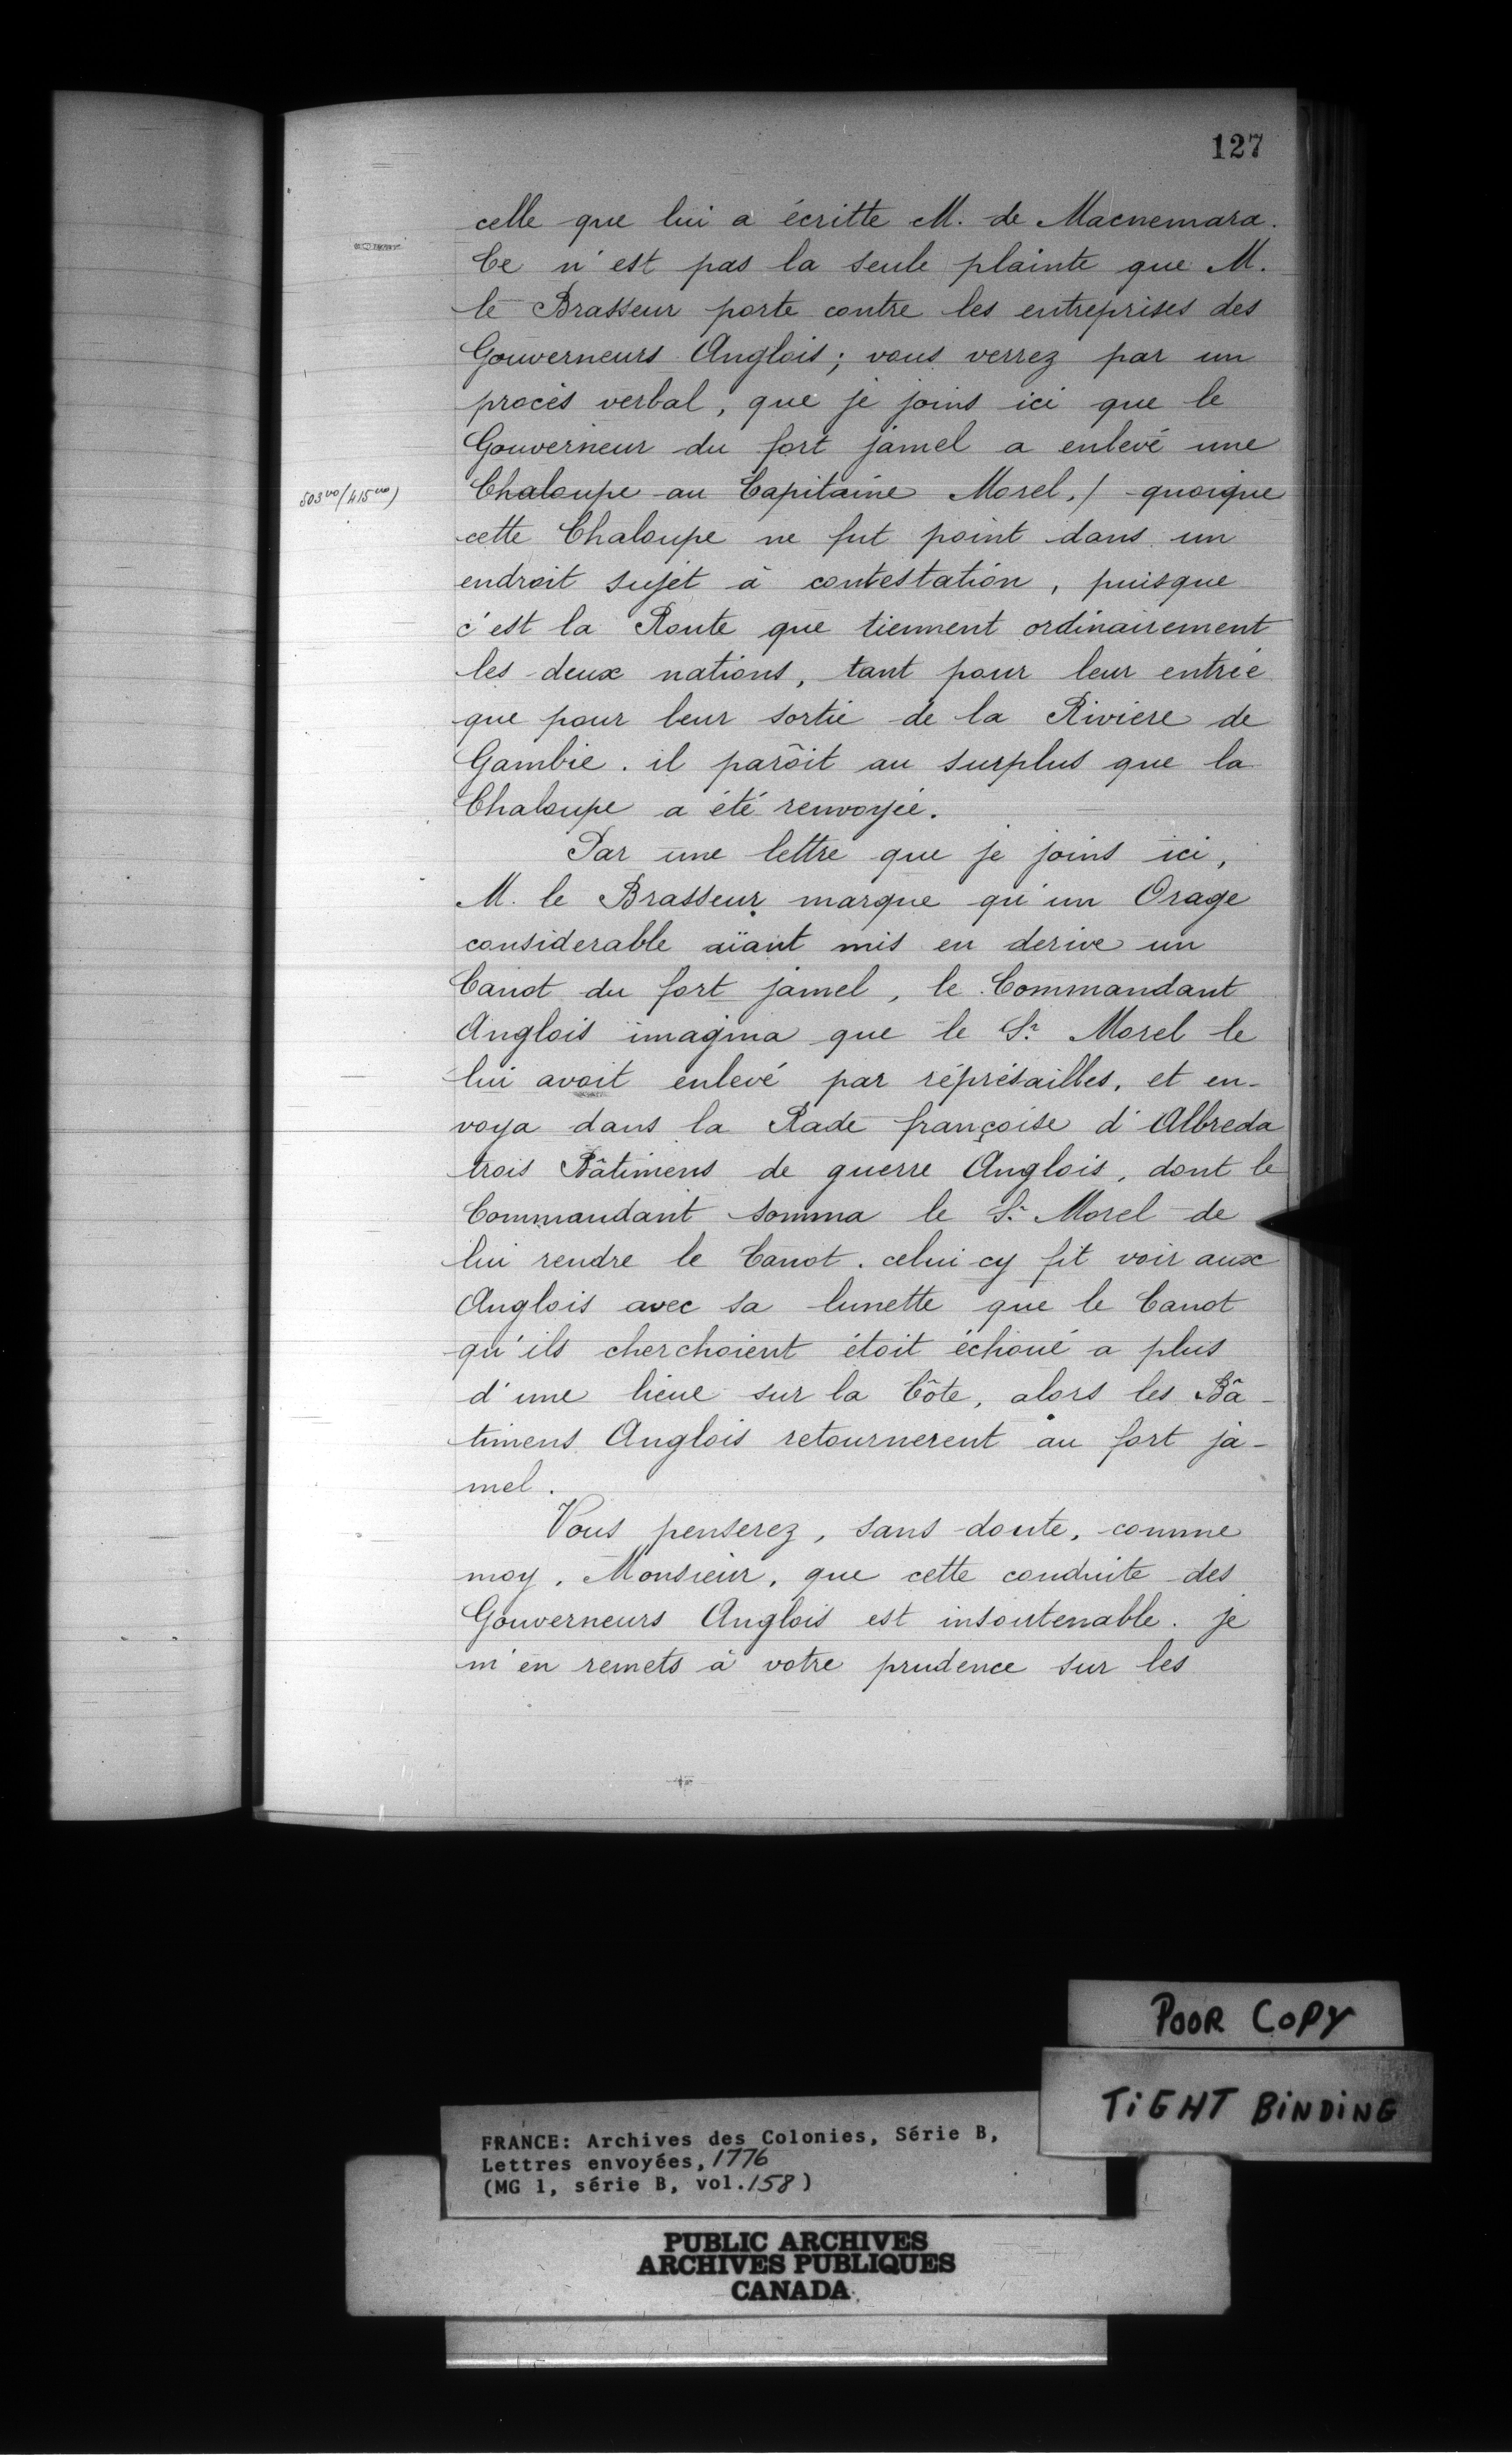 127
celle que lui a écritte M. de Macnemara.
Ce n'est pas la seule plainte que M.
le Brasseur porte contre les entreprises des
Gouverneurs Anglois; vous verrez par un
procès verbal, que je joins ici que le
Gouverneur du fort jamel a enlevé une
503 vo (415 vo) Chaloupe au Capitaine Morel, / quoique
cette Chaloupe ne fut point dans un
endroit sujet à contestation, puisque
c'est la Route que tiennent ordinairement
les deux nations, tant pour leur entrée
que pour leur sortie de la Riviere de
Gambie. il parôit au surplus que la
Chaloupe a été renvoyée.
Par une lettre que je joins ici,
M. le Brasseur marque qu'un Orage
considerable aïant mis en derive un
Canot du fort jamel, le Commandant
Anglois imagina que le Sr. Morel le
lui avoit enlevé par réprésailles, et en-
voya dans la Rade françoise d'Albreda
trois Bâtimens de guerre Anglois, dont le
Commandant somma le Sr. Morel de
lui rendre le Canot. celui cy fit voir aux
Anglois avec sa lunette que le Canot
qu'ils cherchoient étoit échoué a plus
d'une lieue sur la Côte, alors les Bâ-
timens Anglois retournerent au fort ja-
mel.
Vous penserez, sans doute, comme
moy, Monsieur, que cette conduite des
Gouverneurs Anglois est insoutenable. je
m'en remets à votre prudence sur les
POOR COPY
TIGHT BINDING
FRANCE: Archives des Colonies, Série B,
Lettres envoyées, 1776
(MG 1, série B, vol. 158)
PUBLIC ARCHIVES
ARCHIVES PUBLIQUES
CANADA